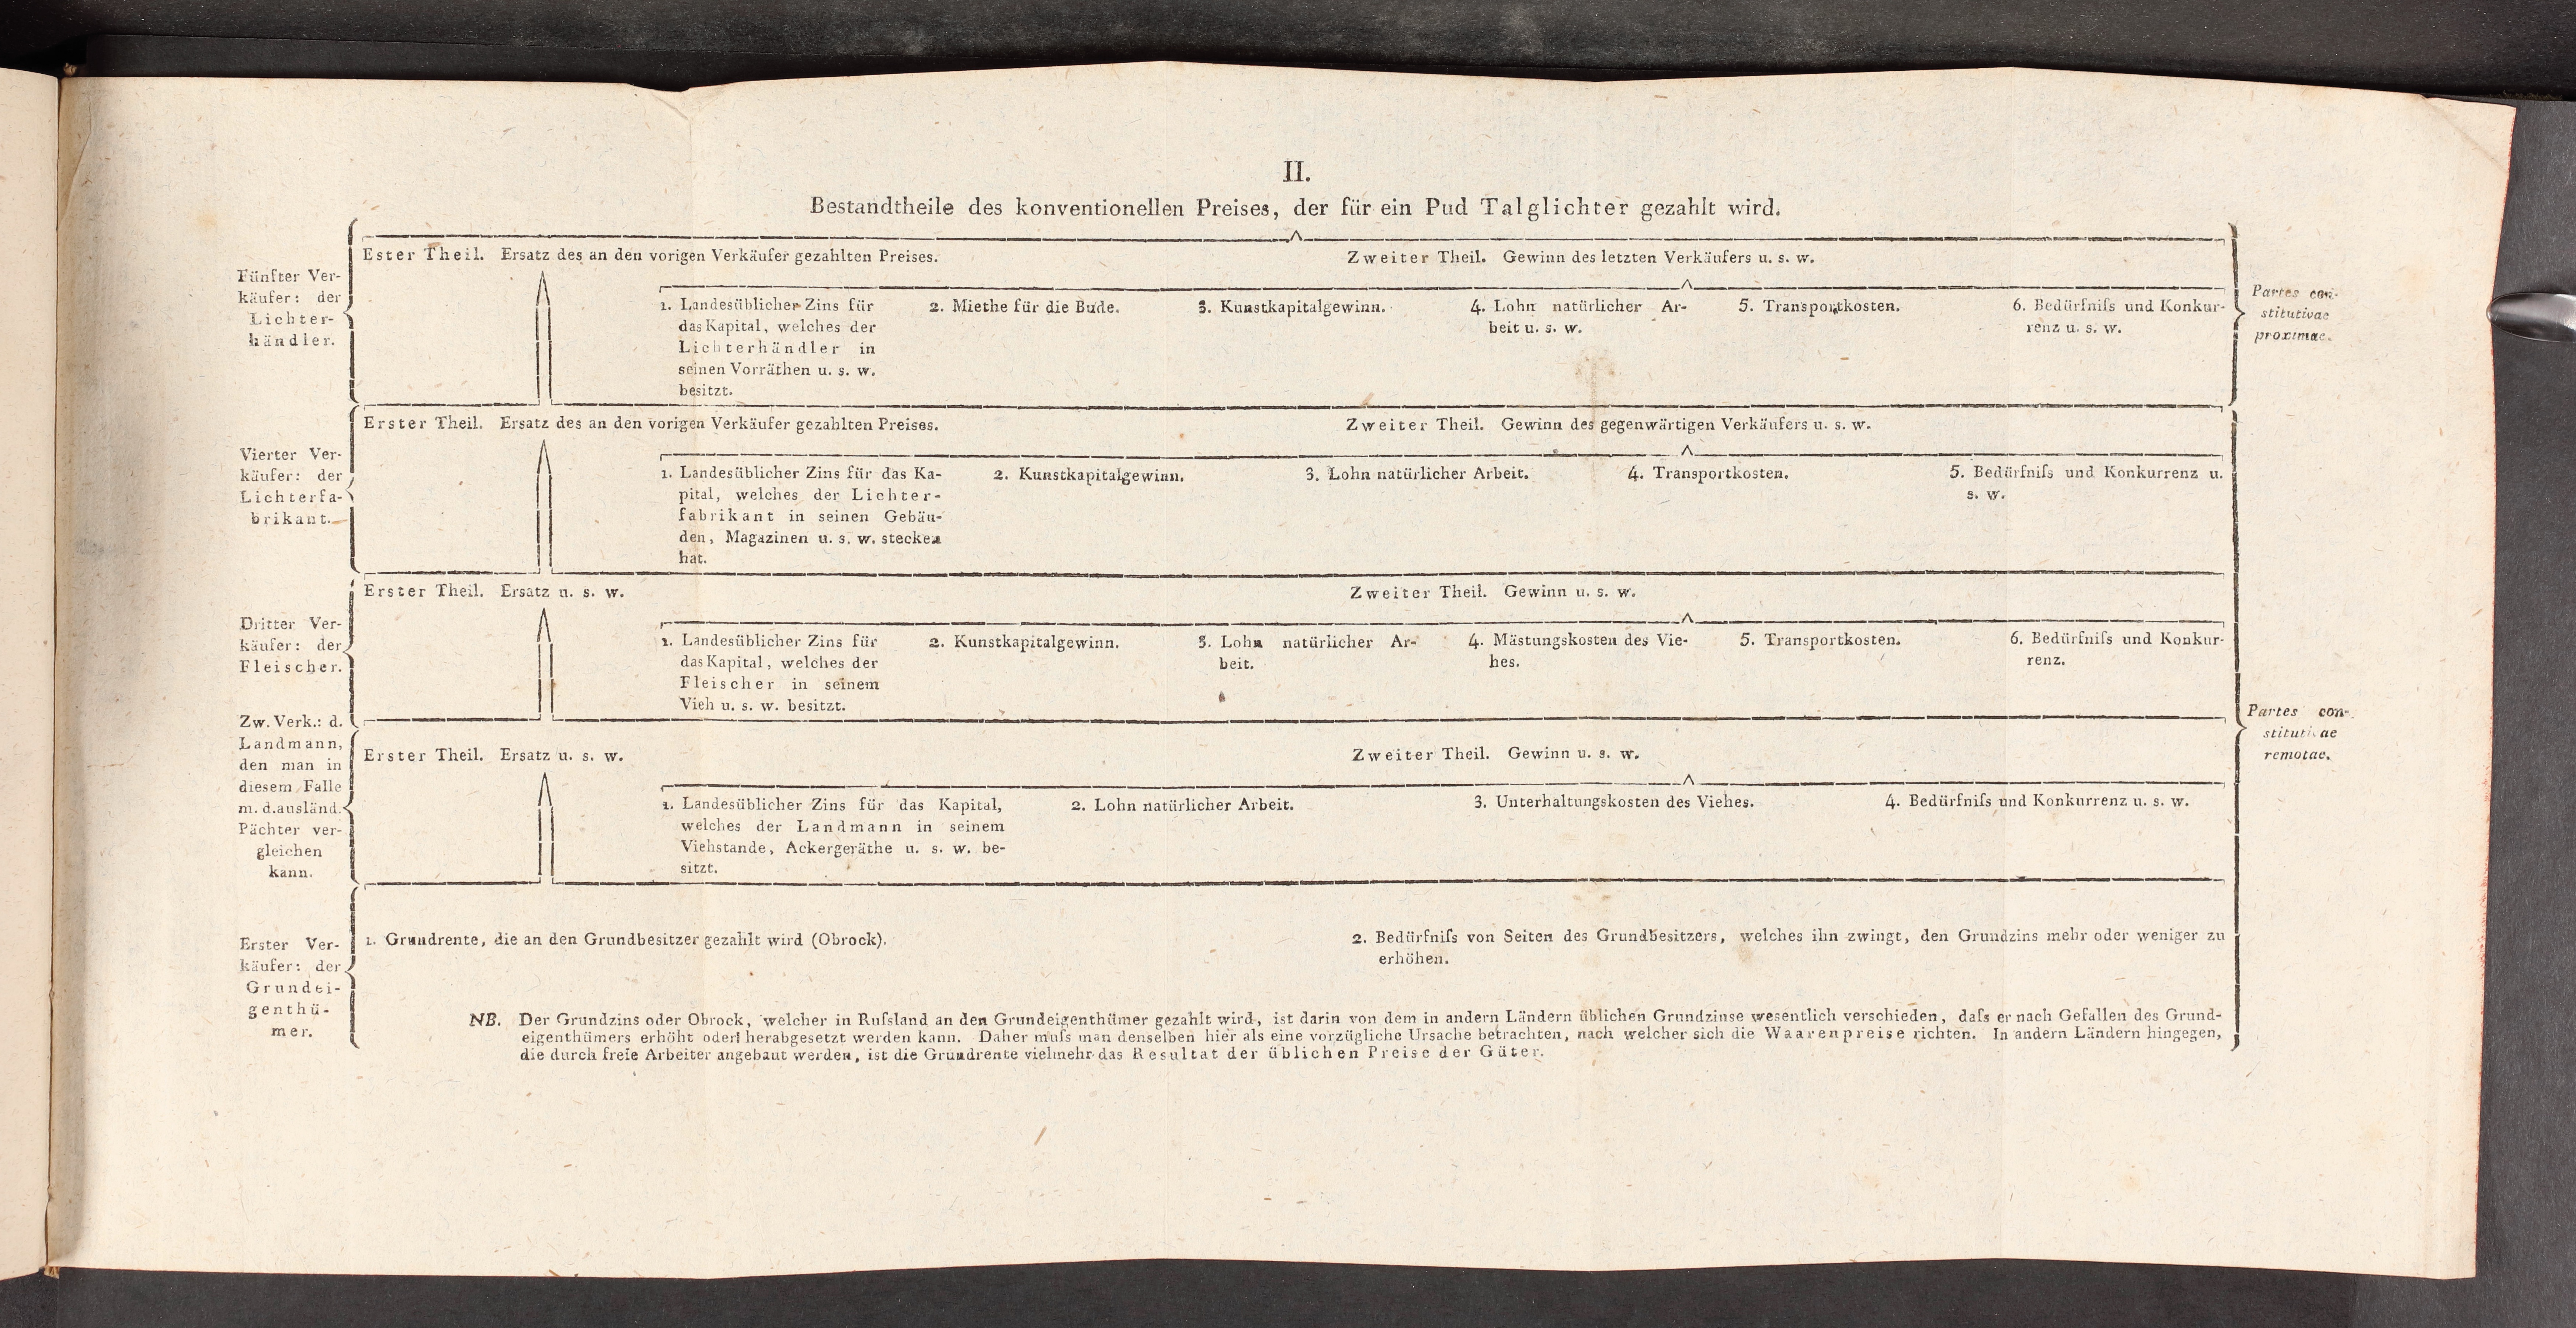 II.
Bestandtheile des konventionellen Preises, der für ein Pud Talglichter gezahlt wird.
Fünfter Ver-
käufer: der
Lichter-
händler.
Ester Theil. Ersatz des an den vorigen Verkäufer gezahlten Preises.
Zweiter Theil. Gewinn des letzten Verkäufers u. s. w.
1. Landesüblicher Zins für
das Kapital, welches der
Lichterhändler in
seinen Vorräthen u. s. w.
besitzt.
2. Miethe für die Bude.
3. Kunstkapitalgewinn.
4. Lohn natürlicher Ar-
beit u. s. w.
5. Transportkosten.
6. Bedürfniſs und Konkur-
renz u. s. w.
Partes con-
stitutivae
proximae.
Vierter Ver-
käufer: der
Lichterfa-
brikant.
Erster Theil. Ersatz des an den vorigen Verkäufer gezahlten Preises.
Zweiter Theil. Gewinn des gegenwärtigen Verkäufers u. s. w.
1. Landesüblicher Zins für das Ka-
pital, welches der Lichter-
fabrikant in seinen Gebäu-
den, Magazinen u. s. w. stecken
hat.
2. Kunstkapitalgewinn.
3. Lohn natürlicher Arbeit.
4. Transportkosten.
5. Bedürfniſs und Konkurrenz u.
s. w.
Dritter Ver-
käufer: der
Fleischer.
Erster Theil. Ersatz u. s. w.
Zweiter Theil. Gewinn u. s. w.
1. Landesüblicher Zins für
das Kapital, welches der
Fleischer in seinem
Vieh u. s. w. besitzt.
2. Kunstkapitalgewinn.
3. Lohn natürlicher Ar-
beit.
4. Mästungskosten des Vie-
hes.
5. Transportkosten.
6. Bedürfniſs und Konkur-
renz.
Partes con-
stitutivae
remotae.
Zw. Verk.: d.
Landmann,
den man in
diesem Falle
m. d. ausländ.
Pächter ver-
gleichen
kann.
Erster Theil. Ersatz u. s. w.
Zweiter Theil. Gewinn u. s. w.
1. Landesüblicher Zins für das Kapital,
welches der Landmann in seinem
Viehstande, Ackergeräthe u. s. w. be-
sitzt.
2. Lohn natürlicher Arbeit.
3. Unterhaltungskosten des Viehes.
4. Bedürfniſs und Konkurrenz u. s. w.
Erster Ver-
käufer: der
Grundei-
genthü-
mer.
1. Grundrente, die an den Grundbesitzer gezahlt wird (Obrock).
2. Bedürfniſs von Seiten des Grundbesitzers, welches ihn zwingt, den Grundzins mehr oder weniger zu
erhöhen.
NB. Der Grundzins oder Obrock, welcher in Ruſsland an den Grundeigenthümer gezahlt wird, ist darin von dem in andern Ländern üblichen Grundzinse wesentlich verschieden, daſs er nach Gefallen des Grund-
eigenthümers erhöht oder herabgesetzt werden kann. Daher muſs man denselben hier als eine vorzügliche Ursache betrachten, nach welcher sich die Waarenpreise richten. In andern Ländern hingegen,
die durch freie Arbeiter angebaut werden, ist die Grundrente vielmehr das Resultat der üblichen Preise der Güter.